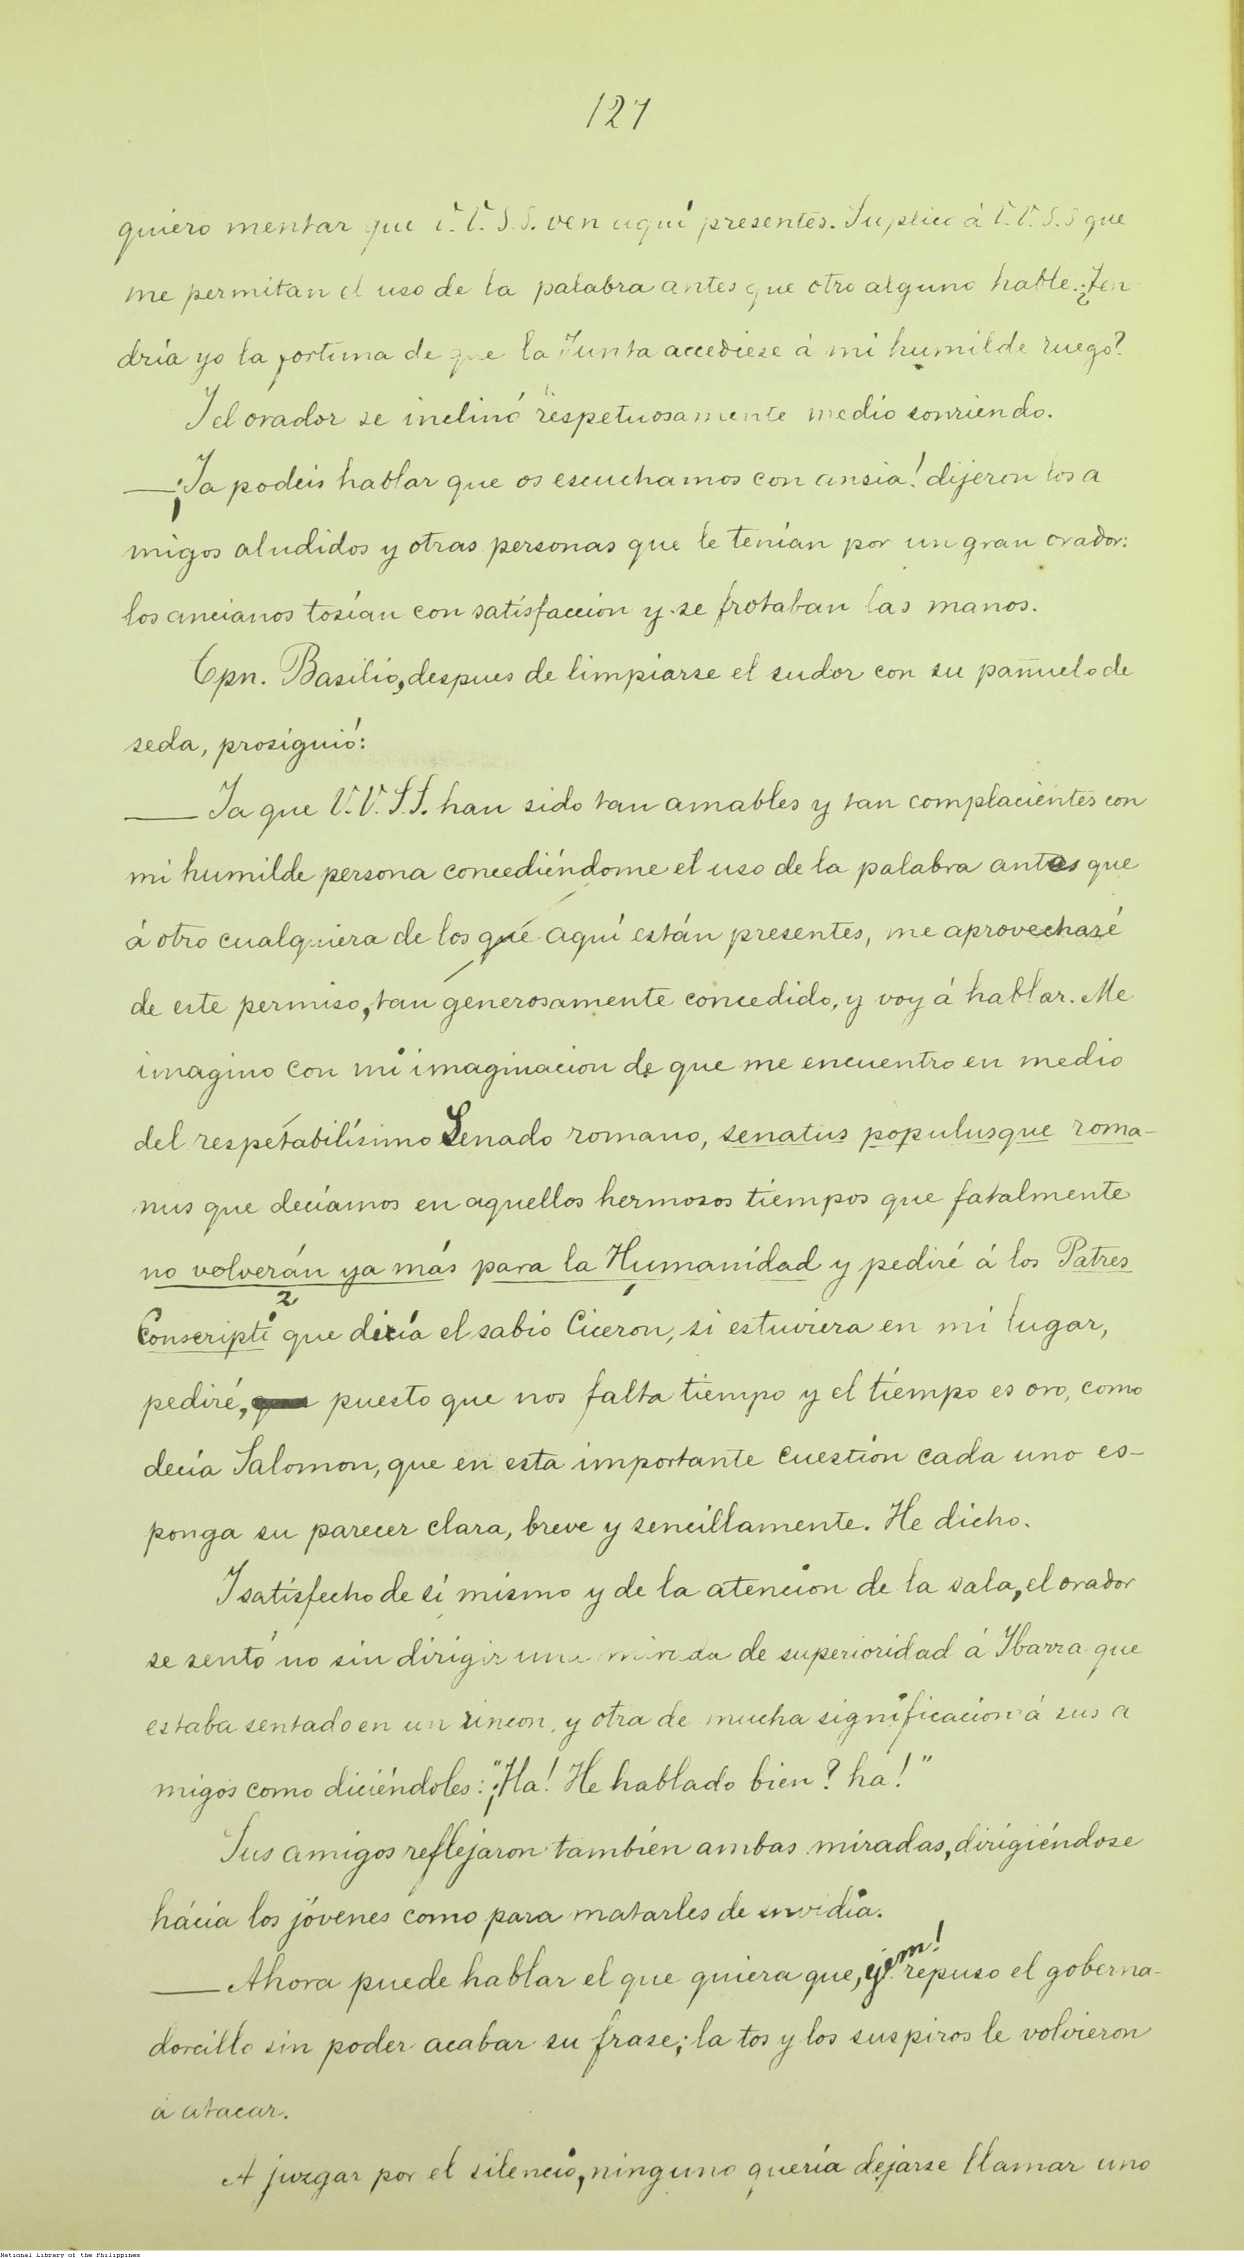 127
quiero mentar que V. V. S. S. ven aquí presentes. Suplico á V. V. S. S que
me permitan el uso de la palabra antes que otro alguno hable. ¿Ten
dría yo la fortuna de que la Junta accediese á mi humilde ruego?
Y el orador se inclinó respetuosamente medio sonriendo.
— ¡Ya podeis hablar que os escuchamos con ansia! dijeron los a
migos aludidos y otras personas que le tenían por un gran orador:
los ancianos tosían con satisfaccion y se frotaban las manos.
Cpn. Basilio, despues de limpiarse el sudor con su pañuelo de
seda, prosiguió:
— Ya que V. V. S. S. han sido tan amables y tan complacientes con
mi humilde persona concediéndome el uso de la palabra antes que
á otro cualquiera de los que aquí están presentes, me aprovecharé
de este permiso, tan generosamente concedido, y voy á hablar. Me
imagino con mi imaginacion de que me encuentro en medio
del respetabilísimo Senado romano, senatus populusque roma-
nus que decíamos en aquellos hermosos tiempos que fatalmente
no volverán ya más para la Humanidad y pediré á los Patres
2
Conscripti que decía el sabio Ciceron, si estuviera en mi lugar,
pediré, puesto que nos falta tiempo y el tiempo es oro, como
decía Salomon, que en esta importante cuestión cada uno es-
ponga su parecer clara, breve y sencillamente. He dicho.
Y satisfecho de sí mismo y de la atencion de la sala, el orador
se sentó no sin dirigir una mirada de superioridad á Ybarra que
estaba sentado en un rincon, y otra de mucha significacion á sus a
migos como diciéndoles: "¡Ha! He hablado bien? ha!"
Sus amigos reflejaron tambien ambas miradas, dirigiéndose
hácia los jóvenes como para matarles de envidia.
— Ahora puede hablar el que quiera que, ejem! repuso el goberna-
dorcillo sin poder acabar su frase; la tos y los suspiros le volvieron
á atacar.
A juzgar por el silencio, ninguno quería dejarse llamar uno
National Library of the Philippines